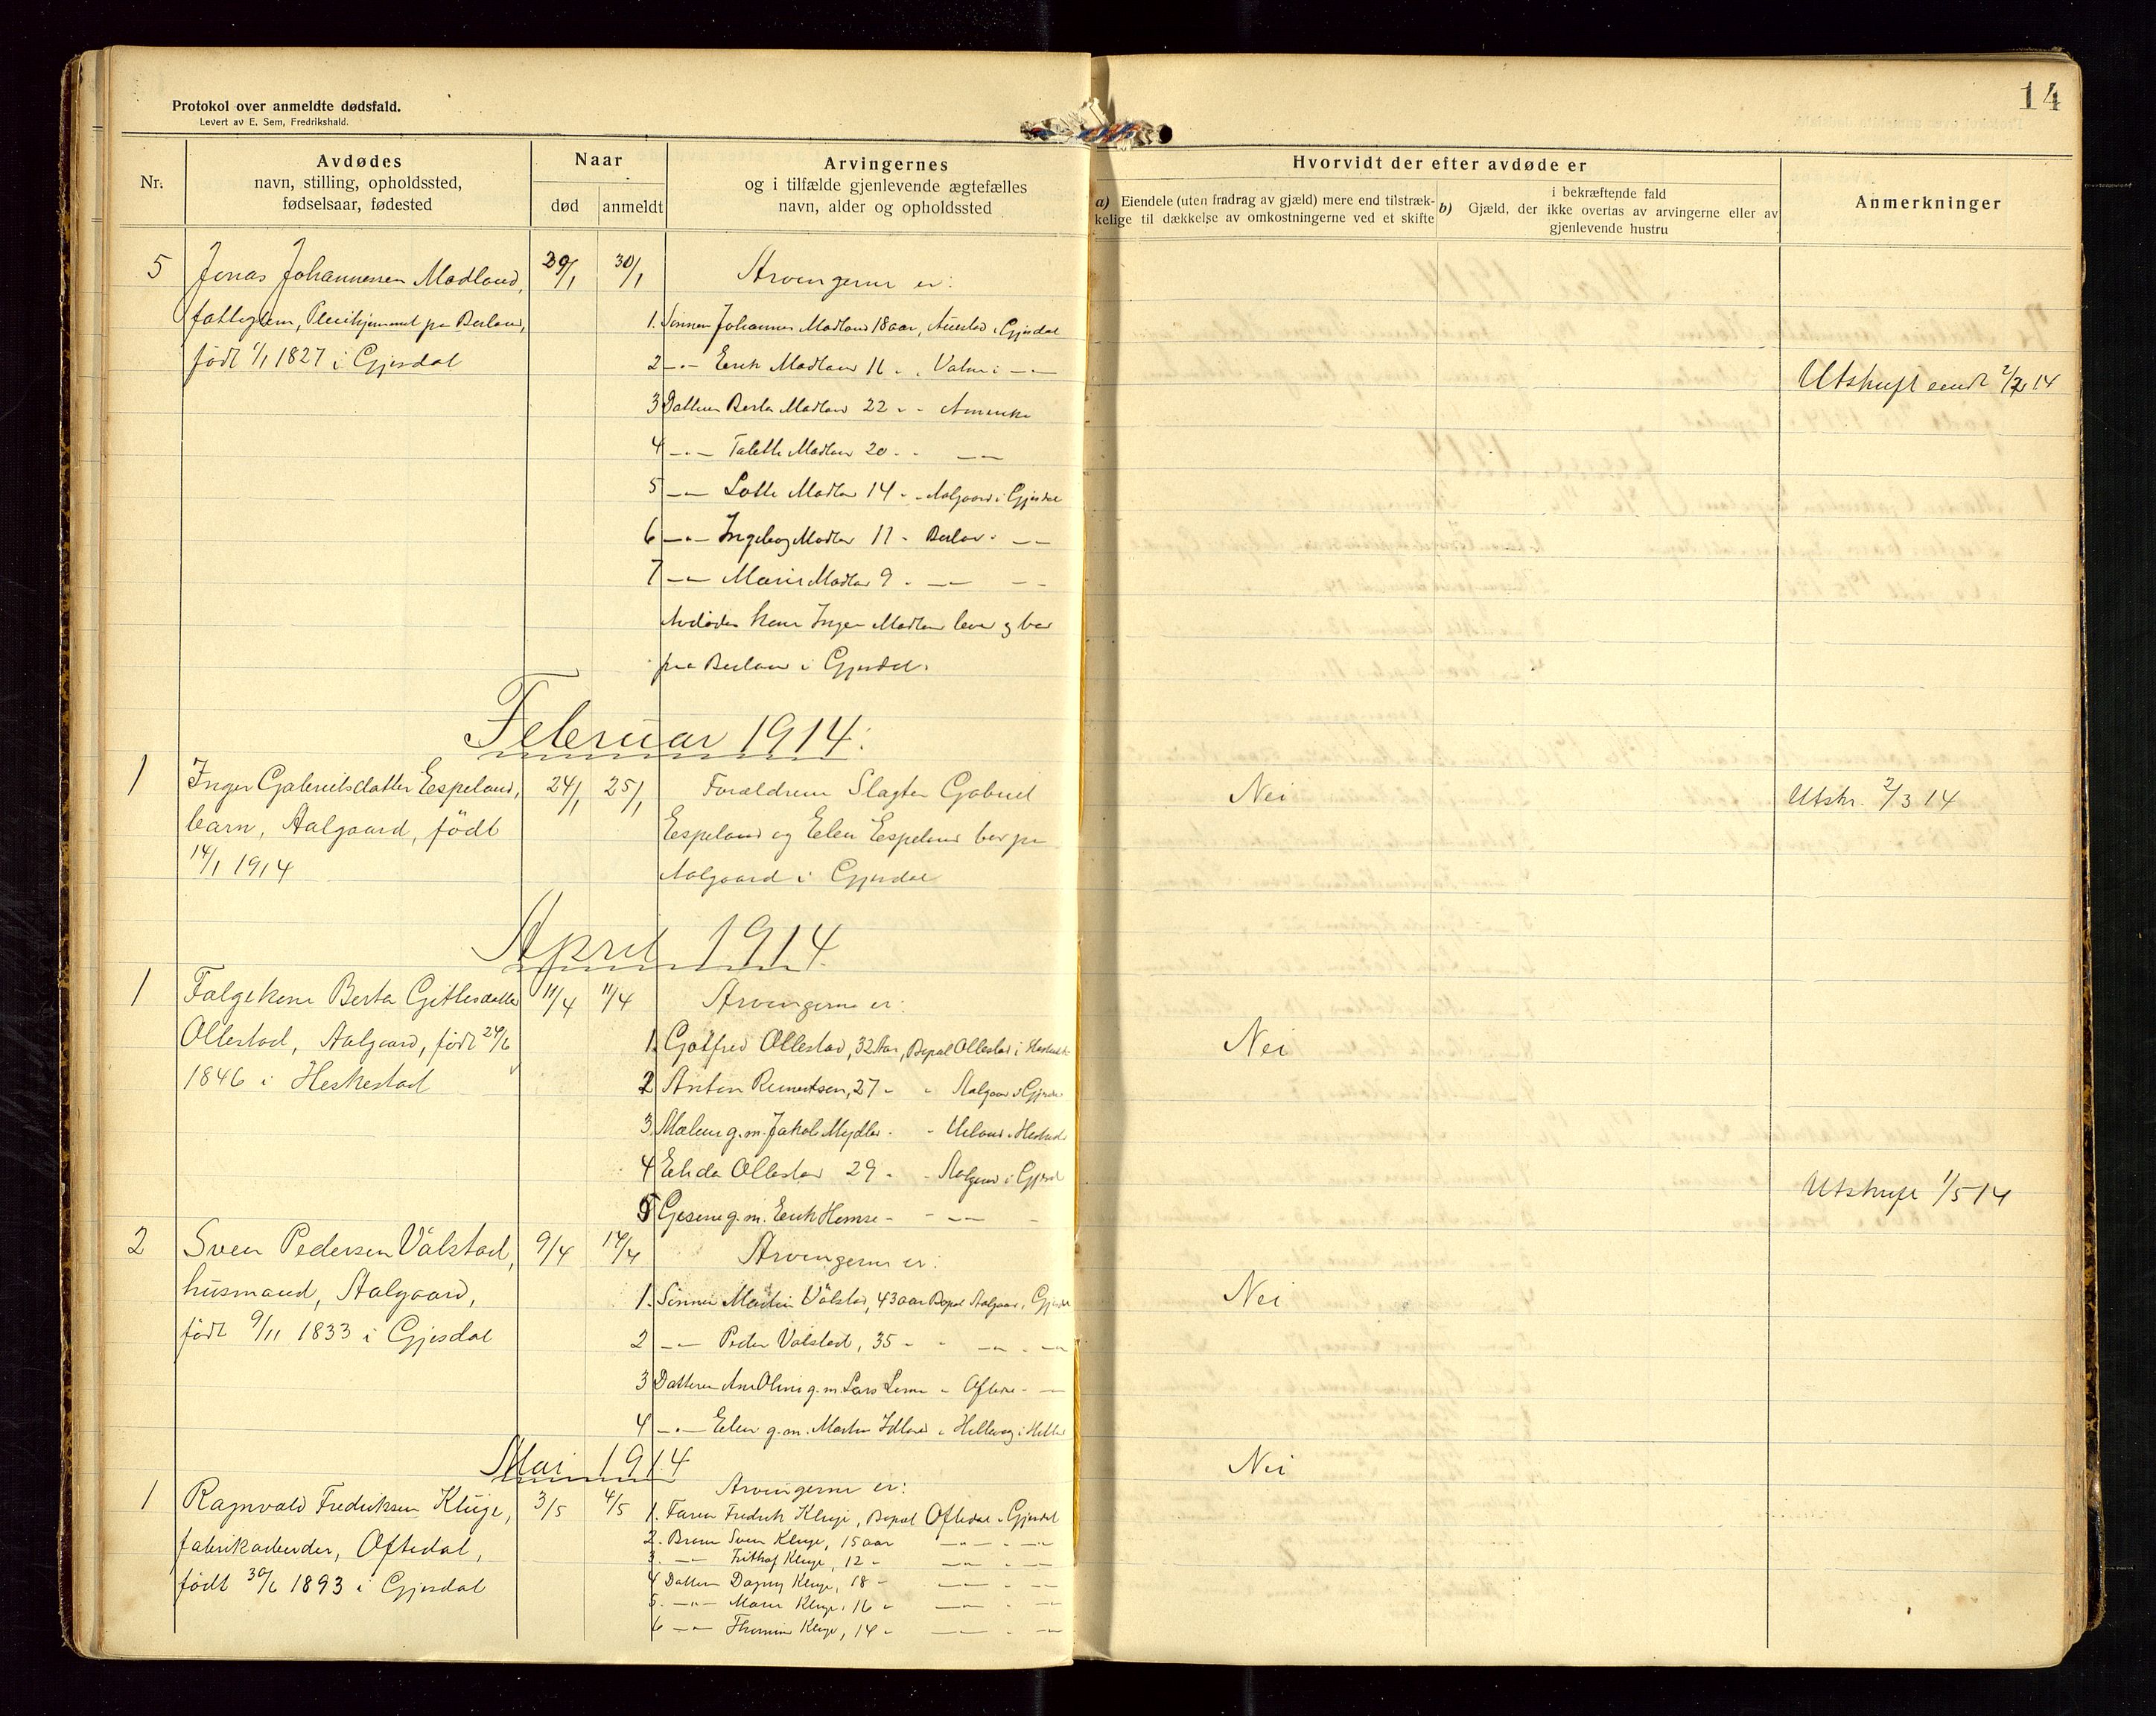 Protokol over anmeldte dødsfald.
Levert av E. Sem, Fredrikshald.
14
Nr.
Avdødes
navn, stilling, opholdssted,
fødselsaar, fødested
Naar
død
anmeldt
Arvingernes
og i tilfælde gjenlevende ægtefælles
navn, alder og opholdssted
Hvorvidt der efter avdøde er
a) Eiendele (uten fradrag av gjæld) mere end tilstræk-
kelige til dækkelse av omkostningerne ved et skifte
b) Gjæld, der i bekræftende fald
ikke overtas av arvingerne eller av
gjenlevende hustru
Anmerkninger
5 Jonas Johannessen Madland, 29/1 30/1 Arvingerne er:
fatteglem, Pleiehjemmet paa
født 1/1 1827 i Gjesdal
1. Sønnen Johannes Madland 18 aar, i Gjesdal
2 -"- Erik Madland 16 - -
3 Datteren Berta Madland 22 - - Amerika
4 -"- Madland 20 - - -"-
5 -"- Lotte Madland 14 - - Aalgaard i Gjesdal
6 -"- Ingeborg Madland 11 - -"-
7 -"- Marie Madland 9 - -"- -"-
Avdødes kone Inger Madland lever og bor
paa i Gjesdal.
Utskrift sendt 2/2 14
Februar 1914.
1 Inger Gabrielsdatter Espeland, 24/1 25/1 Forældrene Slagter Gabriel Nei Utskr. 2/3 14
barn, Aalgaard, født Espeland og Elen Espeland bor paa
14/1 1914 Aalgaard i Gjesdal
April 1914.
1 Følgekone Berta Gitlesdatter 11/4 11/4 Arvingerne er:
Ollestad, Aalgaard, født 24/6
1846 i Heskestad
1. Gotfred Ollestad, 32 Aar, Bopæl Ollestad i Heskestad Nei
2 Anton Reinertsen, 27 - - Aalgaard i Gjesdal
3. Malene g.m. Jakob - - Ueland i Heskestad
4 Elida Ollestad 29 - - Aalgaard i Gjesdal
5 Gesine g.m. Erik - - -"- -
Utskrift 1/5 14
2 Sven Pedersen Vålstad, 9/4 14/4 Arvingerne er:
husmand, Aalgaard,
født 9/11 1833 i Gjesdal
1. Sønnen Martin Vålstad, 43 aar Bopæl Aalgaard i Gjesdal Nei
2 -"- Peder Vålstad, 35 - - -"- - -"-
3 Datteren Ane Oline g.m. Lars - Oftedal - -"-
4 -"- Elen g.m. Martin - i
Mai 1914
1 Ragnvald Fredriksen Kluge, 3/5 4/5 Arvingerne er: Nei
fabrikarbeider, Oftedal,
født 30/6 1893 i Gjesdal
1. Faren Fredrik Kluge, Bopæl Oftedal i Gjesdal
2. Broren Sven Kluge, 15 aar -"- - -"-
3. -"- Frithof Kluge, 12 - -"- - -"-
4 Datteren Dagny Kluge, 18 - -"- - -"-
5. -"- Marie Kluge, 16 - -"- - -"-
6 -"- Kluge, 14 - -"- - -"-